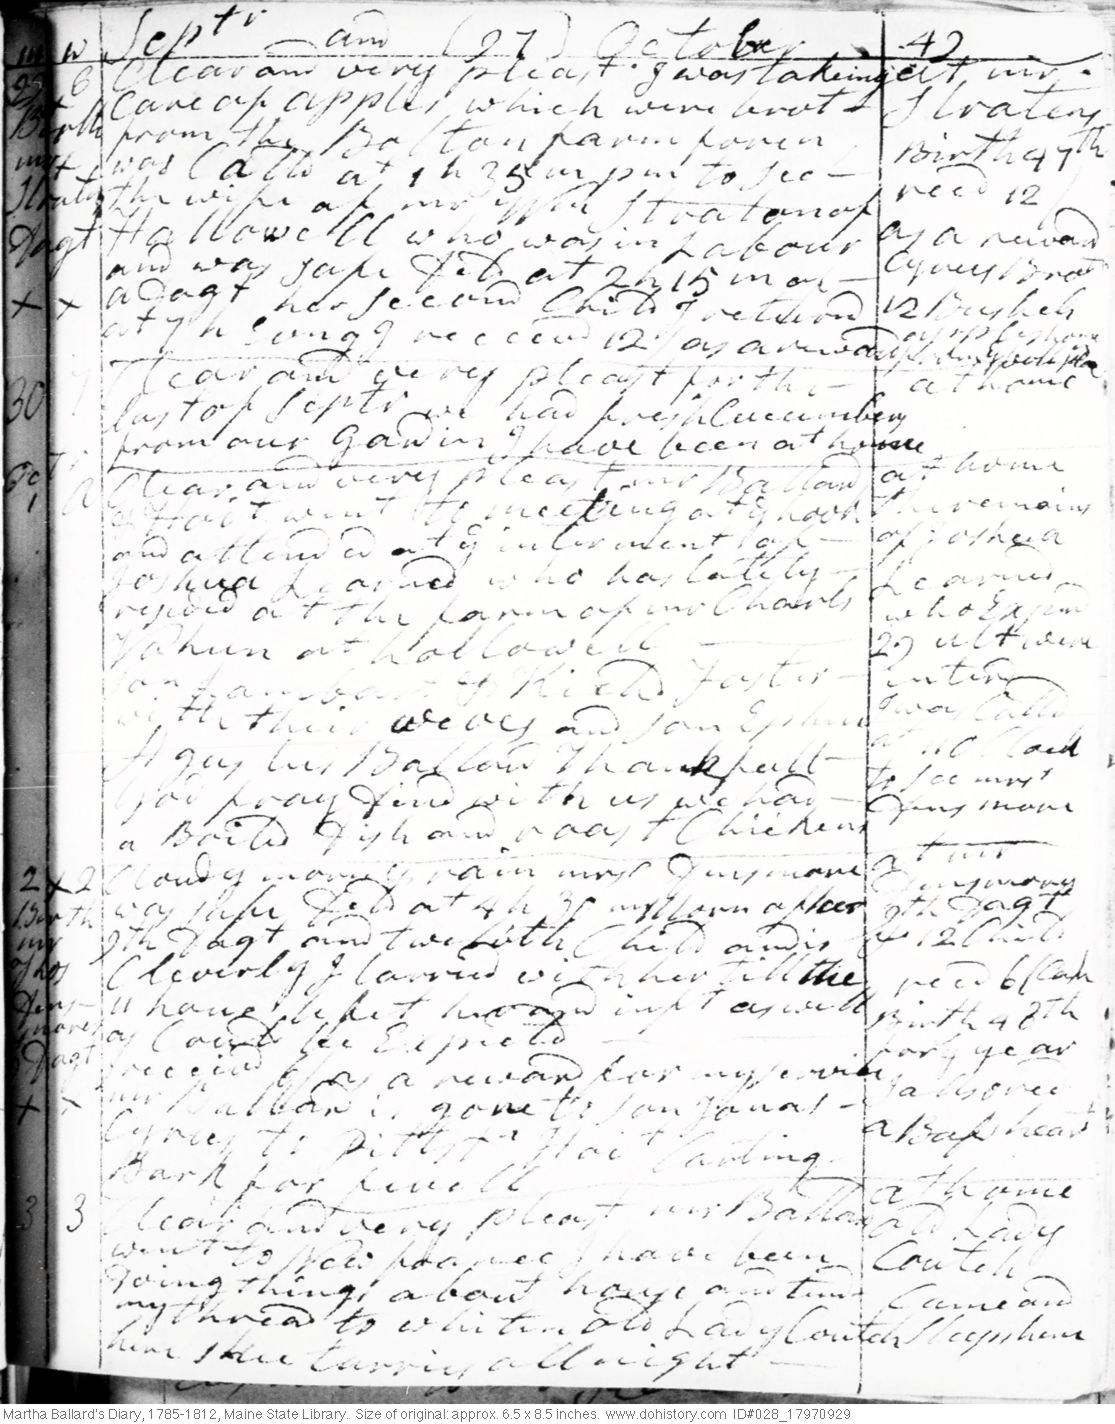 m w Septr and (27) October 42
29 6 Clear and very pleast. I was takeing
Birth Care of apples which were brot
from the Bolton farm foren
mrs was Calld at 1 h 35 m pm to see
Stratns the wife of mr Wm Straton of
Dagt Hallowell who was in Labour
and was safe Dld at 2 h 15 m of
x x a Dagt her second Child I returnd
at 7 h Evng I receivd 12/ as a reward
at mr
Stratons
Birth 47th
recd 12/
as a reward
Cyrus Brot
12 Bushels
apples home
30 7 Clear and very pleast for the
last of Septr we had fresh Cucumbers
from our gardin I have been at home
at home
Octr
1 A Clear and very pleast mr Ballard
& Hoit went to meeting at ye hook
and attended at ye interment of
Joshua Learned who has lately
resided at the farm of mr Charls
Vahun at hallowell
son Lambard & Richd Foster
with their wives and son Ephm
Agustus Ballard Thankfull
God fray Dind with us we had
a Boiled Dish and roast Chickens
at home
the remains
of Joshua
Learned
who Expird
27 ult were
interd
I was Calld
at 11 O Clock
to see mrs
Densmore
2 x 2 Cloudy morn & rain mrs Densmore
Birth was safe Dld at 4 h 30 m morn of her
mr 9th Dagt and twelvth Child and is
Thos Cleverly I tarried with her till the
Dens- 11 hour left her and inft as well
mores as Could be Expected
Dagt I receivd 6/ as a reward for my service
x x mr Ballard is gone to son Jonas
Cyrus to Pittstn Hoit Carting
Bark for fewell
at mr
Densmors
9th Dagt
& 12 Child
recd 6/ Cash
Birth 48th
for ye year
allsoe
a Bafs heart
3 3 Clear and very pleast mr Ballard
went to New france I have been
Doing things about house and tend
my thread to whiten old Lady Coutch
here shee tarries all night
at home
old Lady
Coutch
Came and
sleeps here
Martha Ballard's Diary, 1785-1812, Maine State Library. Size of original: approx. 6.5 x 8.5 inches. www.dohistory.com ID#028_17970929